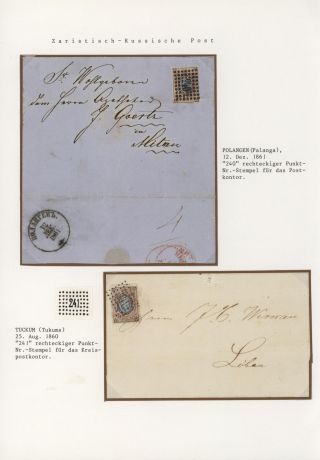 Zaristisch-Russische Post
Sr. Wohlgeboren
dem Herrn
J. Goertz
in
Mitau
POLANGEN(Palanga),
12. Dez. 1861
"240" rechteckiger Punkt-
Nr.-Stempel für das Post-
kontor.
241
TUCKUM (Tukums)
25. Aug. 1860
"241" rechteckiger Punkt-
Nr.-Stempel für das Kreis-
postkontor.
Herrn J. C.
Libau